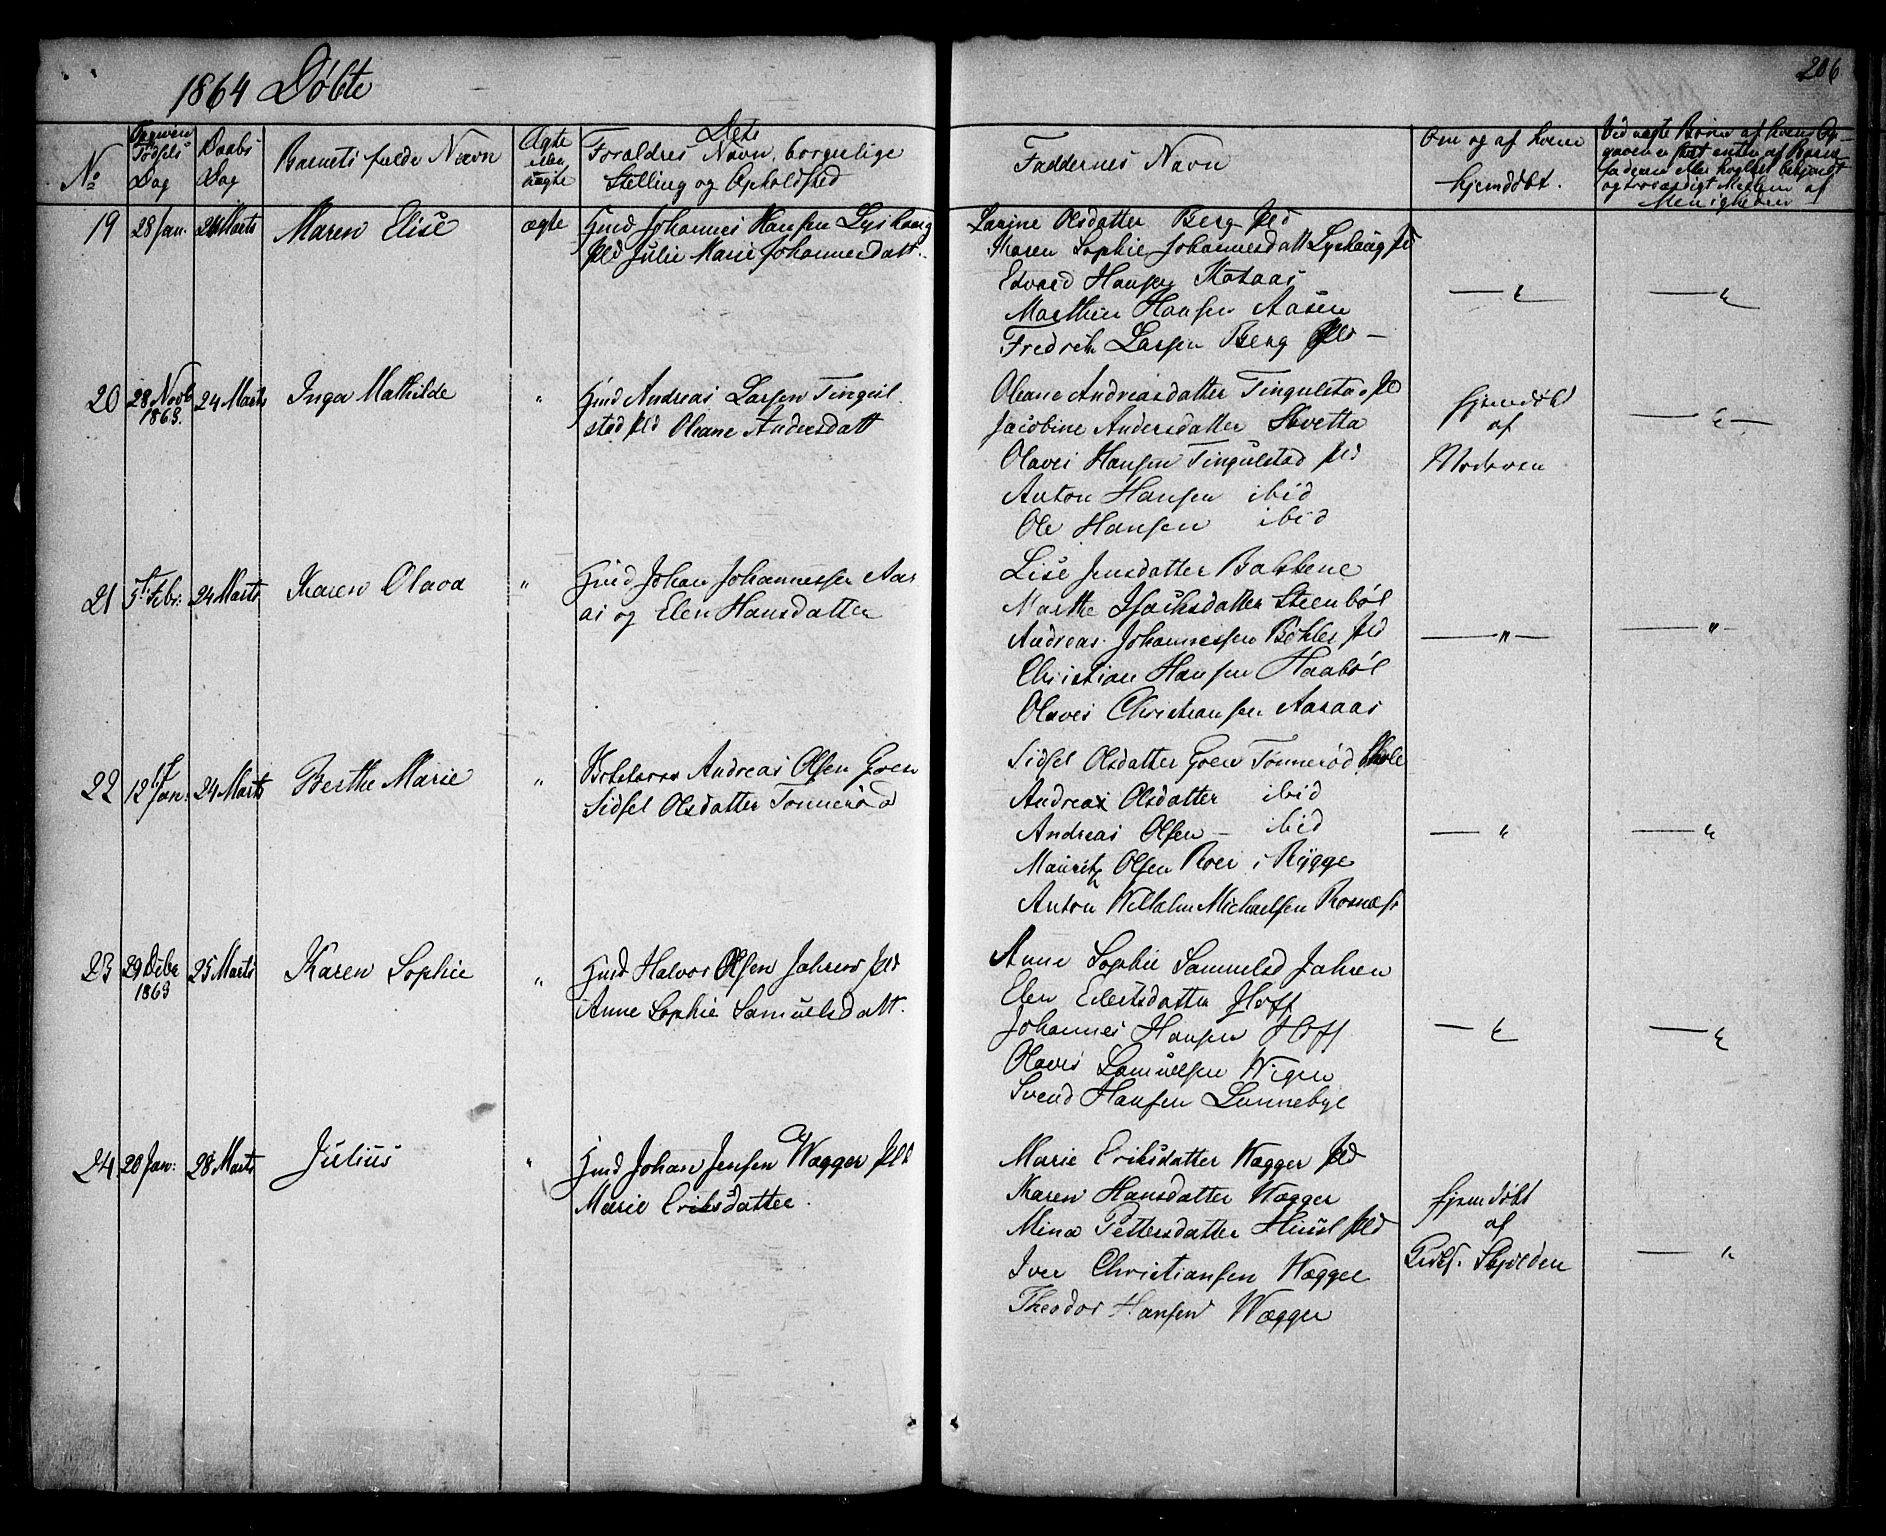 206
1864 Døbte
No
Fødsels Dag
Daabs Dag
Barnets fulde Navn
Ægte eller uægte
Dets Forældres Navn, borgerlige Stilling og Opholdsted
Faddernes Navn
Om og af hvem hjemdøbt.
19 28 Jan. 24 Marts Maren Elise ægte
Hmd Johannes Hansen Lyshaug
pld Julie Marie Johannesdatt.
Larine Olsdatter Berg pld
Maren Sophie Johannesdatt Lyshaug pld
Edvard Hansen
Mathias Hansen Aasen
Fredrik Larsen Berg pld —
20 28 Novb 1863. 24 Marts Inga Mathilde "
Hmd Andreas Larsen Tingul-
stad pld Oleane Andersdatt
Oleane Andreasdatter Tingulstad pld
Jacobine Andersdatter
Olaves Hansen Tingulstad pld
Anton Hansen ibid
Ole Hansen ibid
hjemdøbt
af
Moderen
21 5t Febr. 24 Marts Karen Olava "
Hmd Johan Johannessen Aar
as og Elen Hansdatter
Lise Jensdatter Bakkene
Marthe Isachsdatter Steenbøl
Andreas Johannessen Bøhler pld
Christian Hansen Haabøl
Olaves Christiansen Aaraas
22 12t Jan. 24 Marts Berthe Marie "
Andreas Olsen Groen
Sidsel Olsdatter Tonnerød
Sidsel Olsdatter Groen Tonnerød
Andrea Olsdatter ibid
Andreas Olsen — ibid
Mauritz Olsen Roer i Rygge
Anton Wilhelm Michaelsen Rosnæs
23 29 Debr 1863 25 Marts Karen Sophie "
Hmd Halvor Olsen Jahren pld
Anne Sophie Samuelsdatt.
Anne Sophie Samuelsd Jahren
Elen Edertsdatter Hoff
Johannes Hansen Hoff
Olaves Samuelsen Wigen
Svend Hansen Lunnebye
24. 20 Jan. 28 Marts Julius "
Hmd Johan Jensen Wægger pld
Marie Eriksdatter.
Marie Eriksdatter Wægger pld
Karen Hansdatter Wægger
Mina Pettersdatter Huusl pld
Iver Christiansen Wægger
Theodor Hansen Wægger
hjemdøbt
af
Skjolden